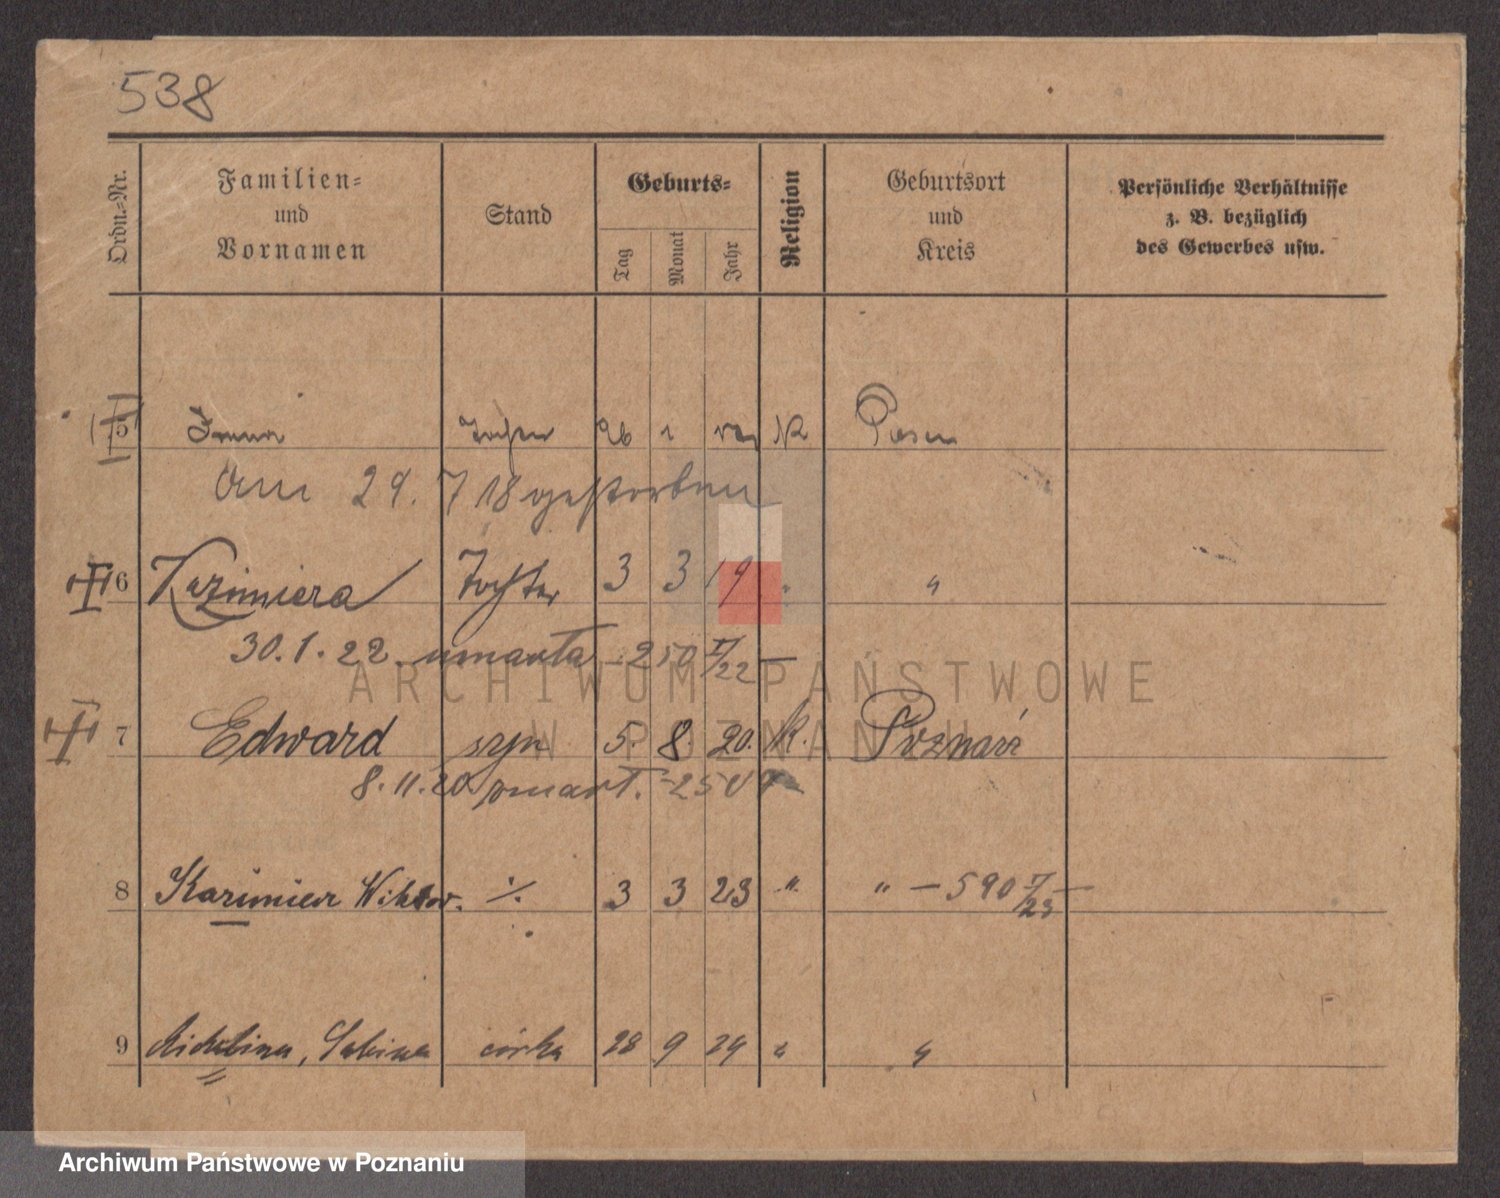 538
Ordn.=Nr. Familien= und Vornamen Stand Geburts= Tag Monat Jahr Religion Geburtsort und Kreis Persönliche Verhältnisse z. B. bezüglich des Gewerbes usw.
5 Tochter 26 1 K Posen
Am 29. 7 18 gestorben
6 Kazimiera Tochter 3 3 19 "
30.1.22. umarła – 250 I/22 –
7 Edward syn 5. 8. 20. K. Poznań
8.11.20 umarł. – 250
8 Kazimierz Wiktor. ·/. 3 3 23 " " – 590 /23 –
9 Sabina córka 28 9 24 " "
ARCHIWUM PAŃSTWOWE
W POZNANIU
Archiwum Państwowe w Poznaniu